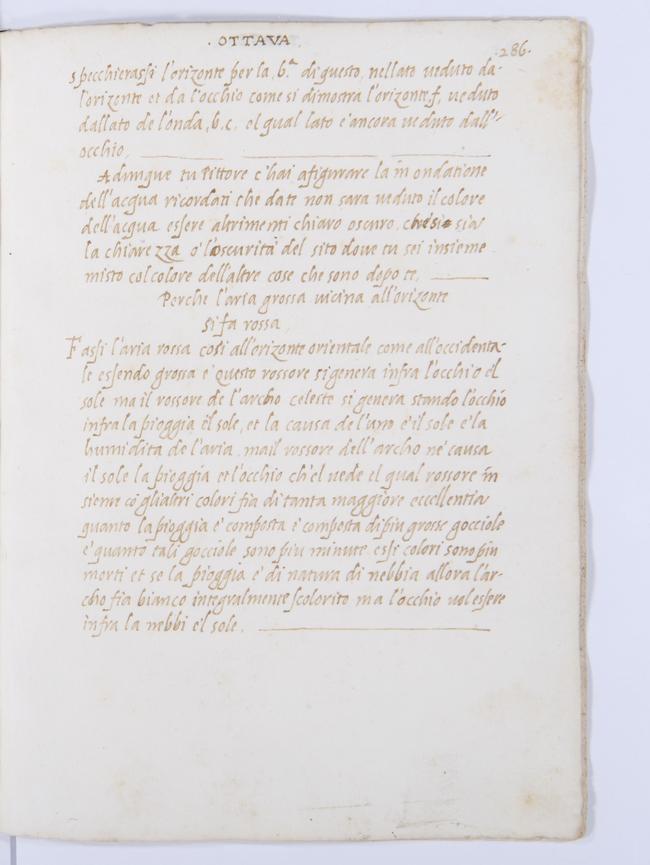 · OTTAVA ·
· 286 ·
specchierassi l'orizonte per la, b.ª di questo, nel lato veduto da-
l'orizonte et da l'occhio come si dimostra l'orizonte, f, veduto
dal lato de l'onda, b.c, el qual lato e ancora veduto dall'-
occhio.
Adunque tu Pittore c'hai a figurare la in ondatione
dell'acqua ricordati che da te non sara veduto il colore
dell'acqua essere altrimenti chiaro o scuro, che si sia
la chiarezza o' l'oscurita del sito dove tu sei insieme
misto col colore dell'altre cose che sono dopo te.
Perche l'aria grossa vicina all'orizonte
si fa rossa.
Fassi l'aria rossa cosi all'orizonte orientale come all'occidenta-
le essendo grossa e questo rossore si genera infra l'occhio el
sole ma il rossore de l'archo celeste si genera stando l'occhio
infra la pioggia el sole, et la causa de l'uno e il sole e la
humidita de l'aria, ma il rossore dell'archo ne causa
il sole la pioggia et l'occhio ch'el vede el qual rossore in
sieme cō gli altri colori fia di tanta maggiore eccellentia
quanto la pioggia e' composta e' composta di piu grosse gocciole
e' quanto tali gocciole sono piu minute, essi colori sono piu
morti et se la pioggia e' di natura di nebbia allora l'ar-
cho fia bianco integralmente scolorito ma l'occhio vol essere
infra la nebbi el sole.